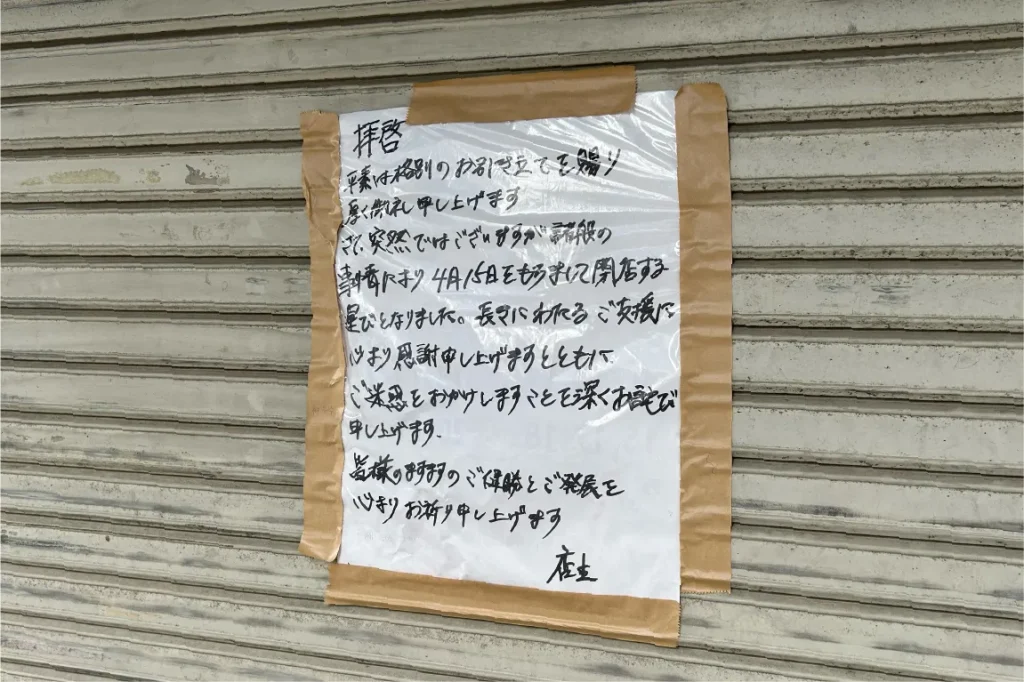 拝啓
平素は格別のお引き立てを賜り
厚く御礼申し上げます
さて、突然ではございますが諸般の
事情により 4月15日をもちまして閉店する
運びとなりました。長きにわたるご支援に
心より感謝申し上げますとともに
ご迷惑をおかけしますことを深くお詫び
申し上げます。
皆様のますますのご健勝とご発展を
心よりお祈り申し上げます
店主